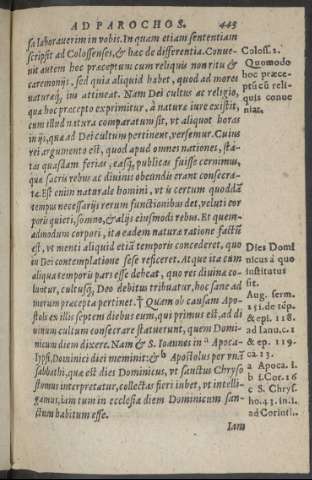 AD PAROCHOS. 445
sa laborauerim in vobis. In quam etiam sententiam
scripsit ad Colossenses, & hæc de differentia. Conue-
nit autem hoc præceptum cum reliquis non ritu &
cæremonijs, sed quia aliquid habet, quod ad mores
naturæq́ue ius attineat. Nam Dei cultus ac religio,
quæ hoc præcepto exprimitur, à naturæ iure existit,
cum illud natura comparatum sit, vt aliquot horas
in ijs, quæ ad Dei cultum pertinent, versemur. Cuius
rei argumento est, quod apud omnes nationes, sta-
tas quasdam ferias, easq́; publicas fuisse cernimus,
quæ sacris rebus ac diuinis obeundis erant consecra-
tæ. Est enim naturale homini, vt is certum quoddā
tempus necessarijs rerum functionibus det, veluti cor
pori quieti, somno, & alijs eiusmodi rebus. Et quem-
admodum corpori, ita eadem naturæ ratione factū
est, vt menti aliquid etiā temporis concederet, quo
in Dei contemplatione sese reficeret. Atque ita cum
aliqua temporis pars esse debeat, quo res diuinæ co-
luntur, cultusq́; Deo debitus tribuatur, hoc sane ad
morum præcepta pertinet. † Quam ob causam Apo-
stoli ex illis septem diebus eum, qui primus est, ad di
uinum cultum consecrare statuerunt, quem Domi-
nicum diem dixere. Nam & S. Ioannes in a Apoca-
lypsi, Dominici diei meminit: & b Apostolus per vnā
sabbathi, quæ est dies Dominicus, vt sanctus Chryso
stomus interpretatur, collectas fieri iubet, vt intelli-
gamus, iam tum in ecclesia diem Dominicum san-
ctum habitum esse.
Iam
Coloss. 2.
Quomodo
hoc præce-
ptū cū reli-
quis conue
niat.
Dies Domi
nicus à quo
institutus
sit.
Aug. serm.
251. de tēp.
& epl. 118.
ad Ianu. c. 1
& ep. 119.
ca 13.
a Apoca. 1.
b 1. Cor. 16
c S. Chryso-
ho. 43. in. 1.
ad Corinth.